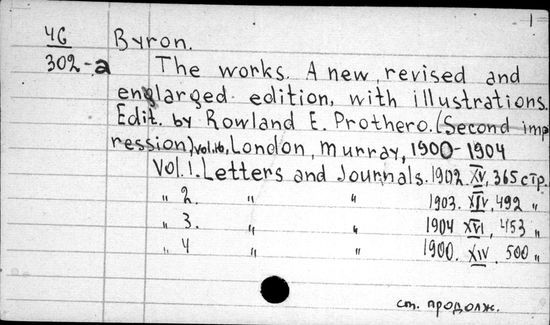 1=
46 Byron.
302-a The works. A new, revised and
enlarged edition, with illustrations.
Edit. by Rowland E. Prothero. (Second imp
ression) vol.16, London, Murray, 1900-1904
Vol. 1. Letters and Journals. 1902. XV, 365 стр.
" 2. " " 1903. XIV, 492 "
" 3. " " 1904 XVI, 453 "
" 4 " " 1900. XIV. 500 "
см. продолж.